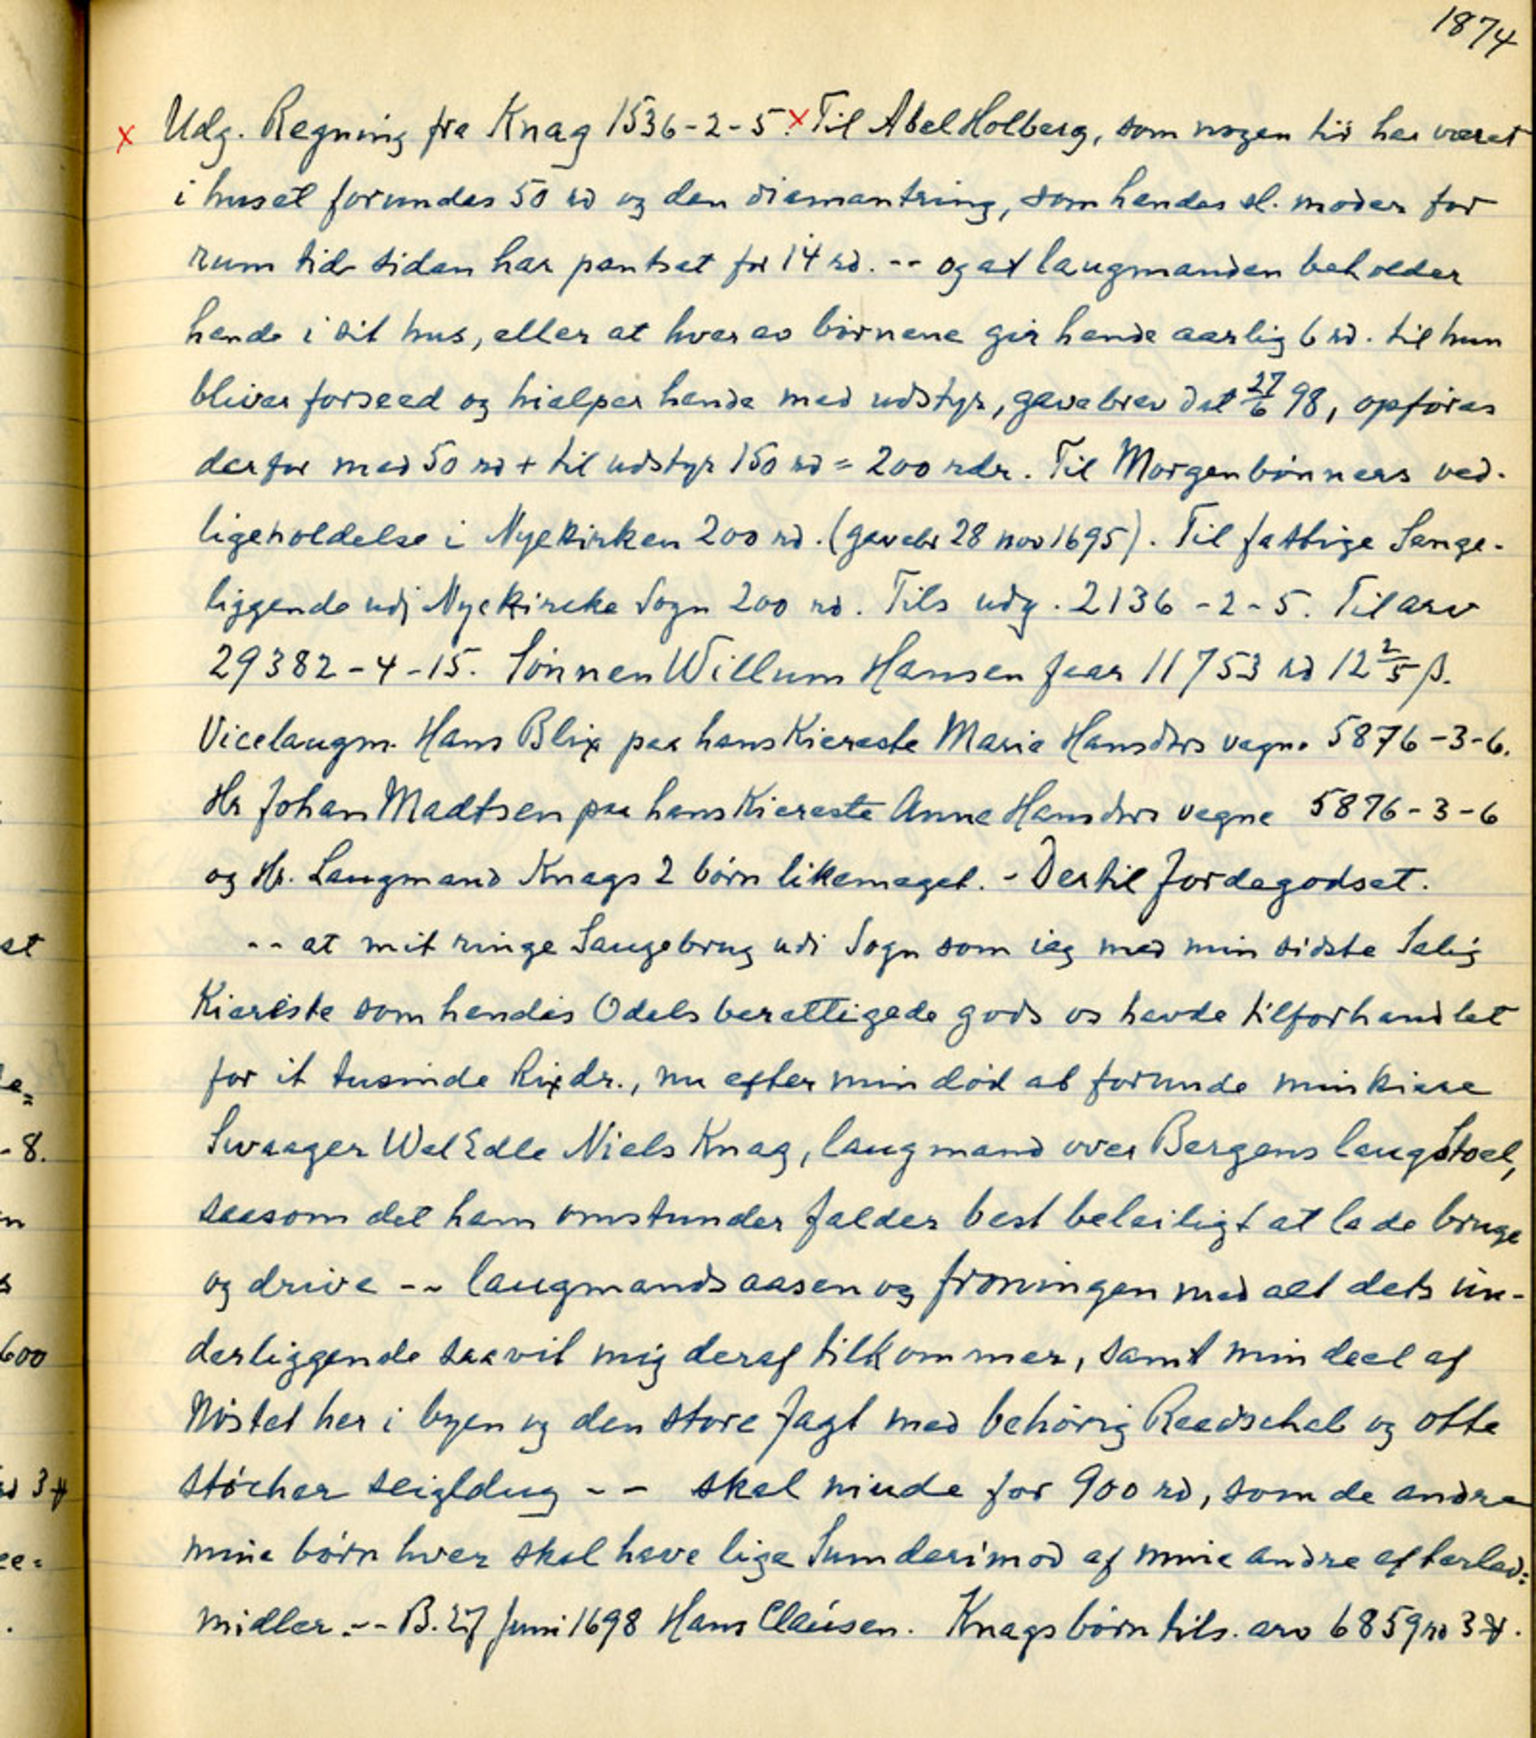 1874
x Udg. Regning fra Knag 1536-2-5. x Til Abel Holberg, som nogen tid har været
i huset forundes 50 rd og den diamantring, som hendes sl. moder for
rum tid siden har pantsat for 14 rd. -- og at laugmanden beholder
hende i sit hus, eller at hver av børnene gir hende aarlig 6 rd. til hun
bliver forseed og hielper hende med udstyr, gavebrev dat 27/6 98, opføres
derfor med 50 rd + til udstyr 150 rd = 200 rdr. Til Morgenbønners ved-
ligeholdelse i Nyekirken 200 rd. (gavebr 28 nov 1695). Til fattige Senge-
liggende udj Nyekircke Sogn 200 rd. Tils udg. 2136-2-5. Til arv
29382-4-15. Sønnen Willum Hansen faar 11753 rd 12 2/5 β.
Vicelaugm. Hans Blix paa hans Kiereste Marie Hansdtrs vegne 5876-3-6.
Hr Johan Madtsen paa hans Kiereste Anne Hansdtrs vegne 5876-3-6
og Hr. Laugmand Knags 2 børn likemeget. - Dertil Jordegodset.
-- at mit ringe Saugebrug udi Sogn som ieg med min sidste Salig
Kieriste som hendes Odels berettigede gods os havde tilforhandlet
for it tusinde Rixdr., nu efter min død at forunde min kiere
Svaager WelEdle Niels Knag, laugmand over Bergens laugStoel,
saasom det ham omstunder falder best beleiligt at lade bruge
og drive -- laugmandsaasen og froningen med alt dets un-
derliggende saavit mig deraf tilkommer, samt min deel af
Nøstet her i byen og den store Jagt med behørig Reedschab og otte
støcher seigldug -- skal niude for 900 rd, som de andre
mine børn hver skal have lige Sum derimod af mine andre efterlad=
midler -- B. 27 Juni 1698 Hans Clausen. Knags børn tils. arv 6859 rd 3 ₰.
et
-8.
600